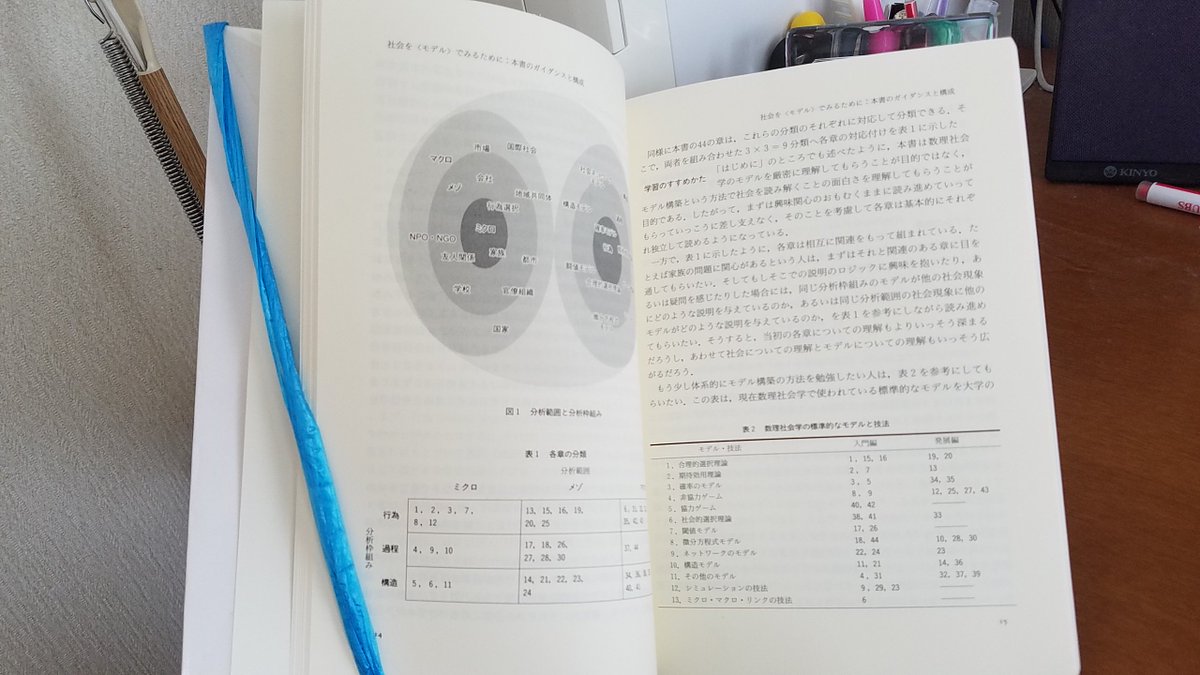 社会を〈モデル〉でみるために:本書のガイダンスと構成
マクロ
市場
国際社会
メゾ
会社
地域共同体
行為選択
ミクロ
NPO・NGO
友人関係
家族
都市
学校
官僚組織
国家
構造モデル
閾値モデル
図1 分析範囲と分析枠組み
表1 各章の分類
分析範囲
ミクロ メゾ
分析枠組み
行為 1, 2, 3, 7, 8, 12 13, 15, 16, 19, 20, 25
過程 4, 9, 10 17, 18, 26, 27, 28, 30 37, 44
構造 5, 6, 11 14, 21, 22, 23, 24
社会を〈モデル〉でみるために:本書のガイダンスと構成
同様に本書の44の章は,これらの分類のそれぞれに対応して分類できる.そ
こで,両者を組み合わせた3×3=9分類へ各章の対応付けを表1に示した
学習のすすめかた 「はじめに」のところでも述べたように,本書は数理社会
学のモデルを厳密に理解してもらうことが目的ではなく,
モデル構築という方法で社会を読み解くことの面白さを理解してもらうことが
目的である.したがって,まずは興味関心のおもむくままに読み進めていって
もらっていっこうに差し支えなく,そのことを考慮して各章は基本的にそれぞ
れ独立して読めるようになっている.
一方で,表1に示したように,各章は相互に関連をもって組まれている.た
とえば家族の問題に関心があるという人は,まずはそれと関連のある章に目を
通してもらいたい.そしてもしそこでの説明のロジックに興味を抱いたり,あ
るいは疑問を感じたりした場合には,同じ分析枠組みのモデルが他の社会現象
にどのような説明を与えているのか,あるいは同じ分析範囲の社会現象に他の
モデルがどのような説明を与えているのか,を表1を参考にしながら読み進め
てもらいたい.そうすると,当初の各章についての理解もよりいっそう深まる
だろうし,あわせて社会についての理解とモデルについての理解もいっそう広
がるだろう.
もう少し体系的にモデル構築の方法を勉強したい人は,表2を参考にしても
らいたい.この表は,現在数理社会学で使われている標準的なモデルを大学の
表2 数理社会学の標準的なモデルと技法
モデル・技法 入門編 発展編
1. 合理的選択理論 1, 15, 16 19, 20
2. 期待効用理論 2, 7 13
3. 確率のモデル 3, 5 34, 35
4. 非協力ゲーム 8, 9 12, 25, 27, 43
5. 協力ゲーム 40, 42
6. 社会的選択理論 38, 41 33
7. 閾値モデル 17, 26
8. 微分方程式モデル 18, 44 10, 28, 30
9. ネットワークのモデル 22, 24 23
10. 構造モデル 11, 21 14, 36
11. その他のモデル 4, 31 32, 37, 39
12. シミュレーションの技法 9, 29, 23
13. ミクロ・マクロ・リンクの技法 6
KINYO